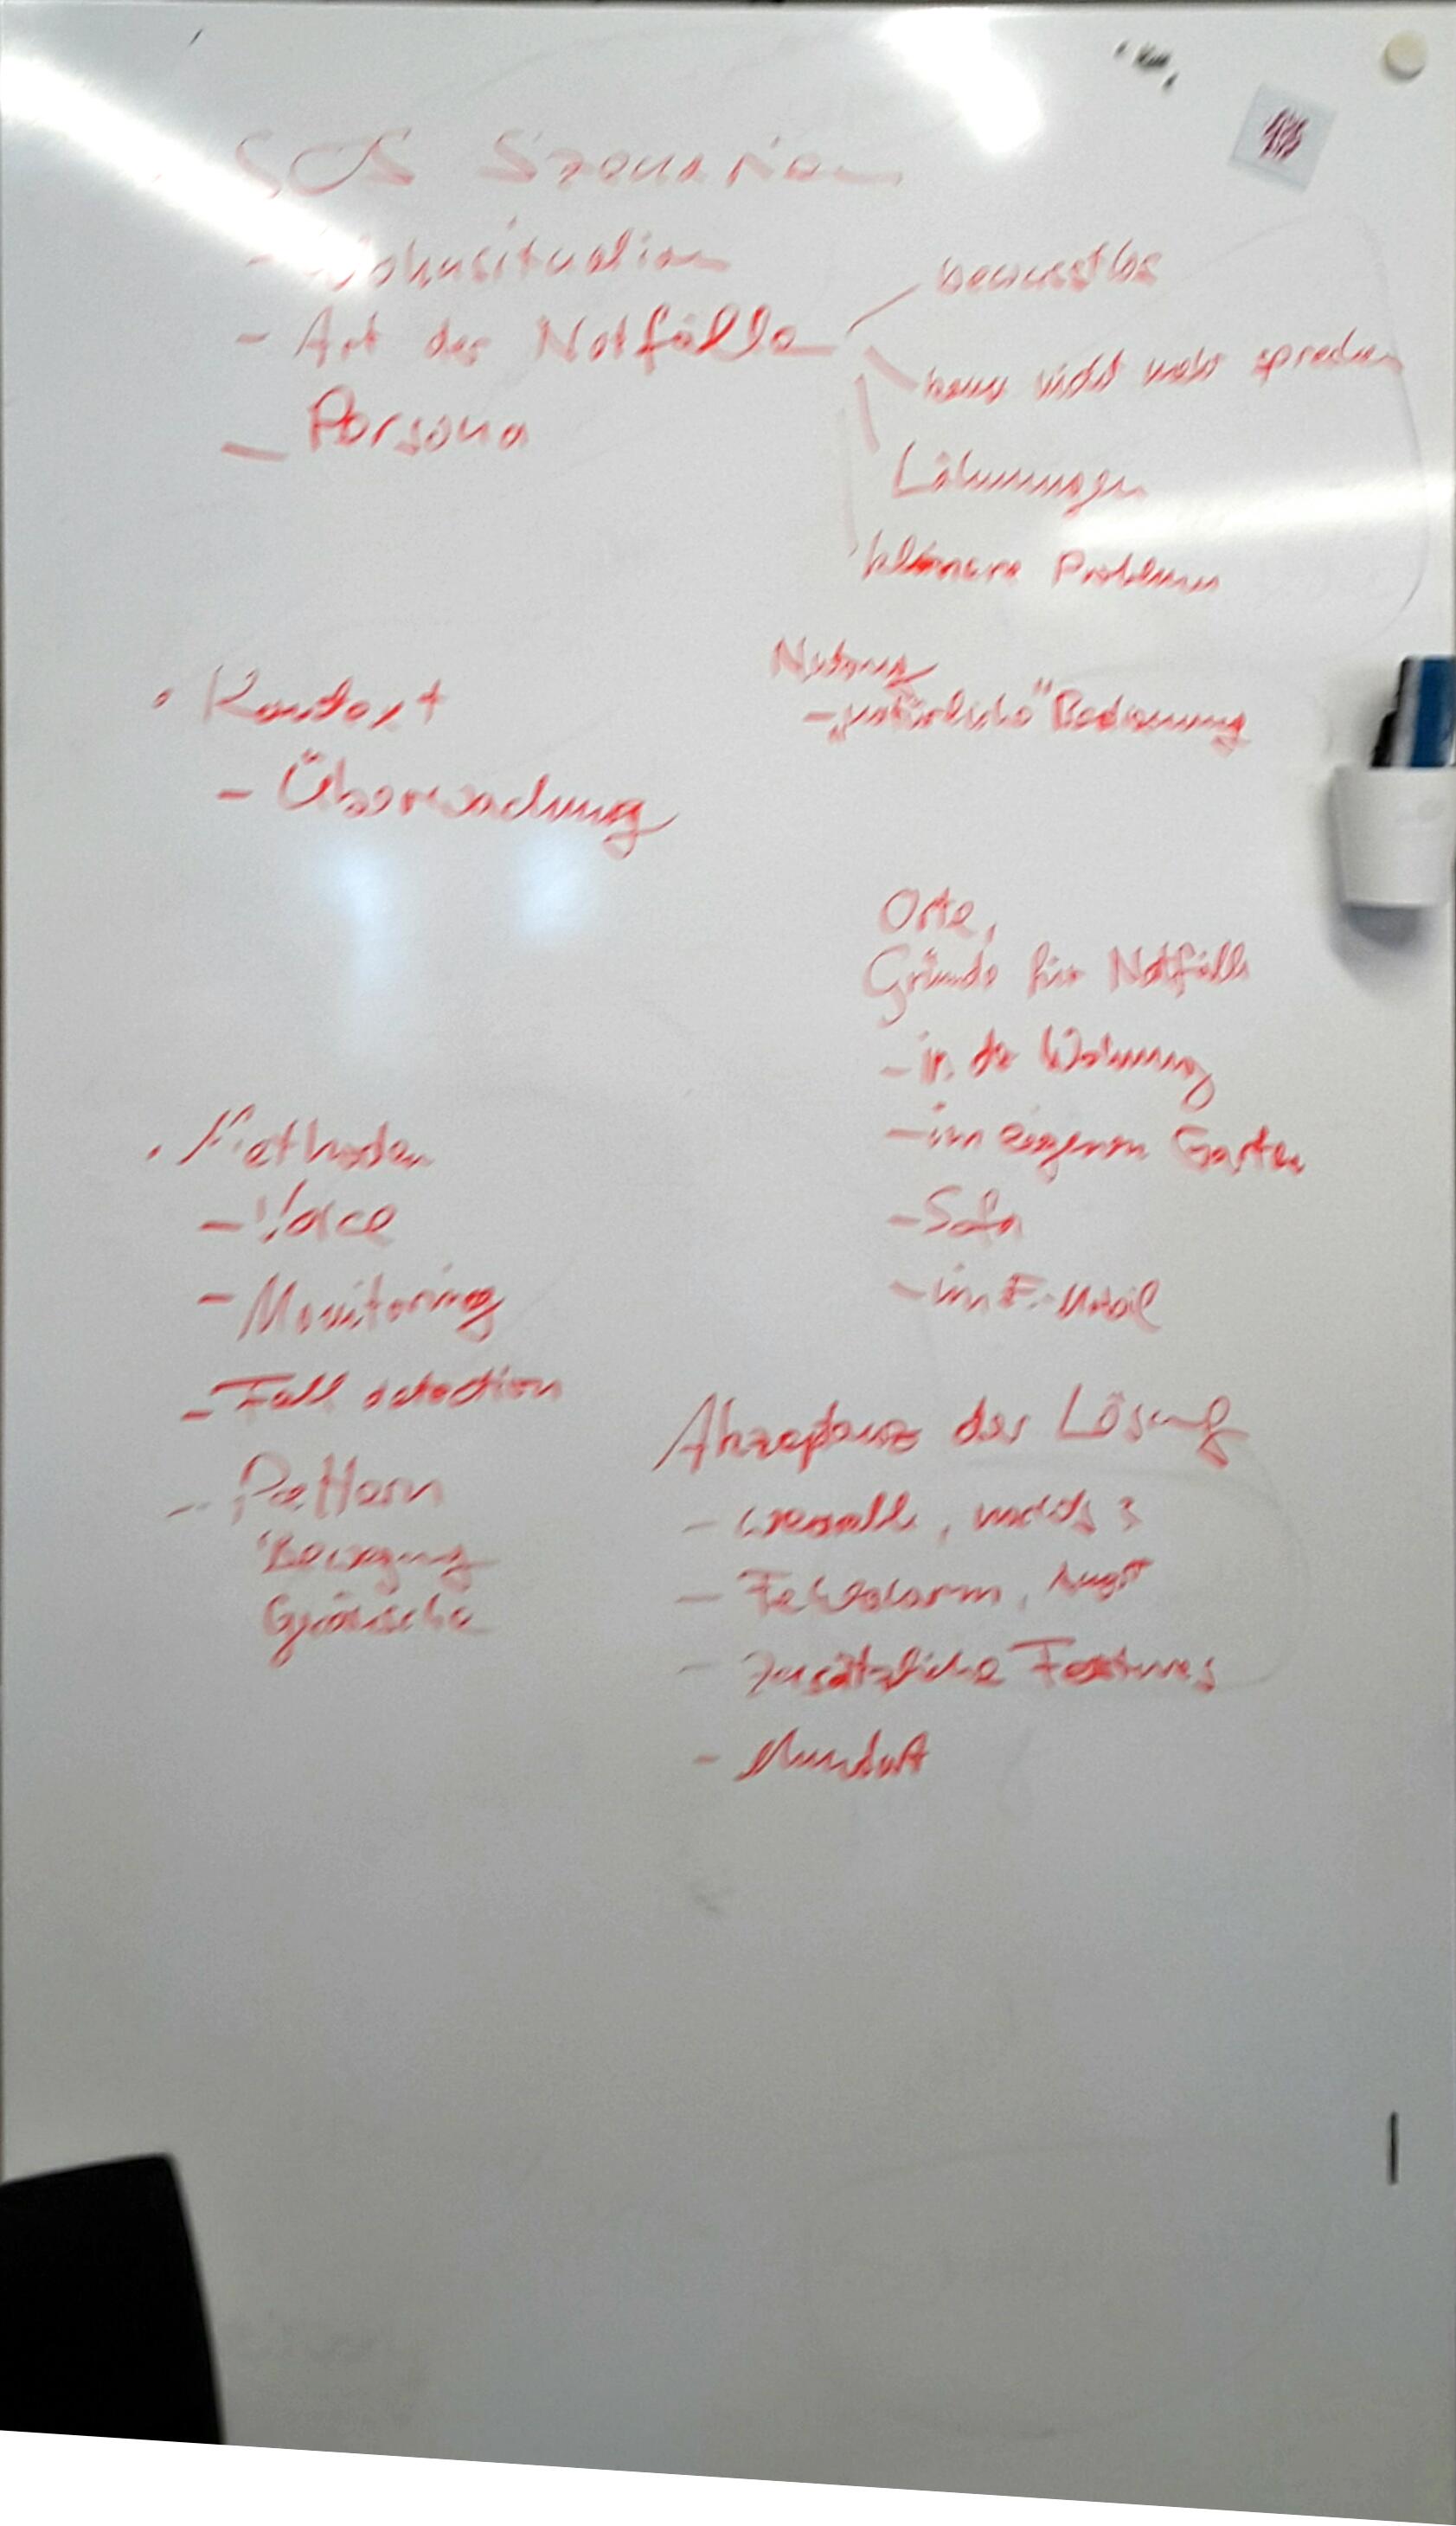 SOS Szenarien
- Wohnsituation
- Art der Notfälle
bewusstlos
kann nicht mehr sprechen
Lähmungen
kleinere Probleme
- Persona
• Kontext
- Überwachung
Nutzung
- „natürliche" Bedienung
Orte,
Gründe für Notfälle
- in der Wohnung
- im eigenen Garten
- Sofa
- im E-Mobil
• Methoden
- Voice
- Monitoring
- Fall detection
- Pattern
Bewegung
Geräusche
Akzeptanz der Lösung
- Fehlalarm, Angst
- zusätzliche Features
- Mundart